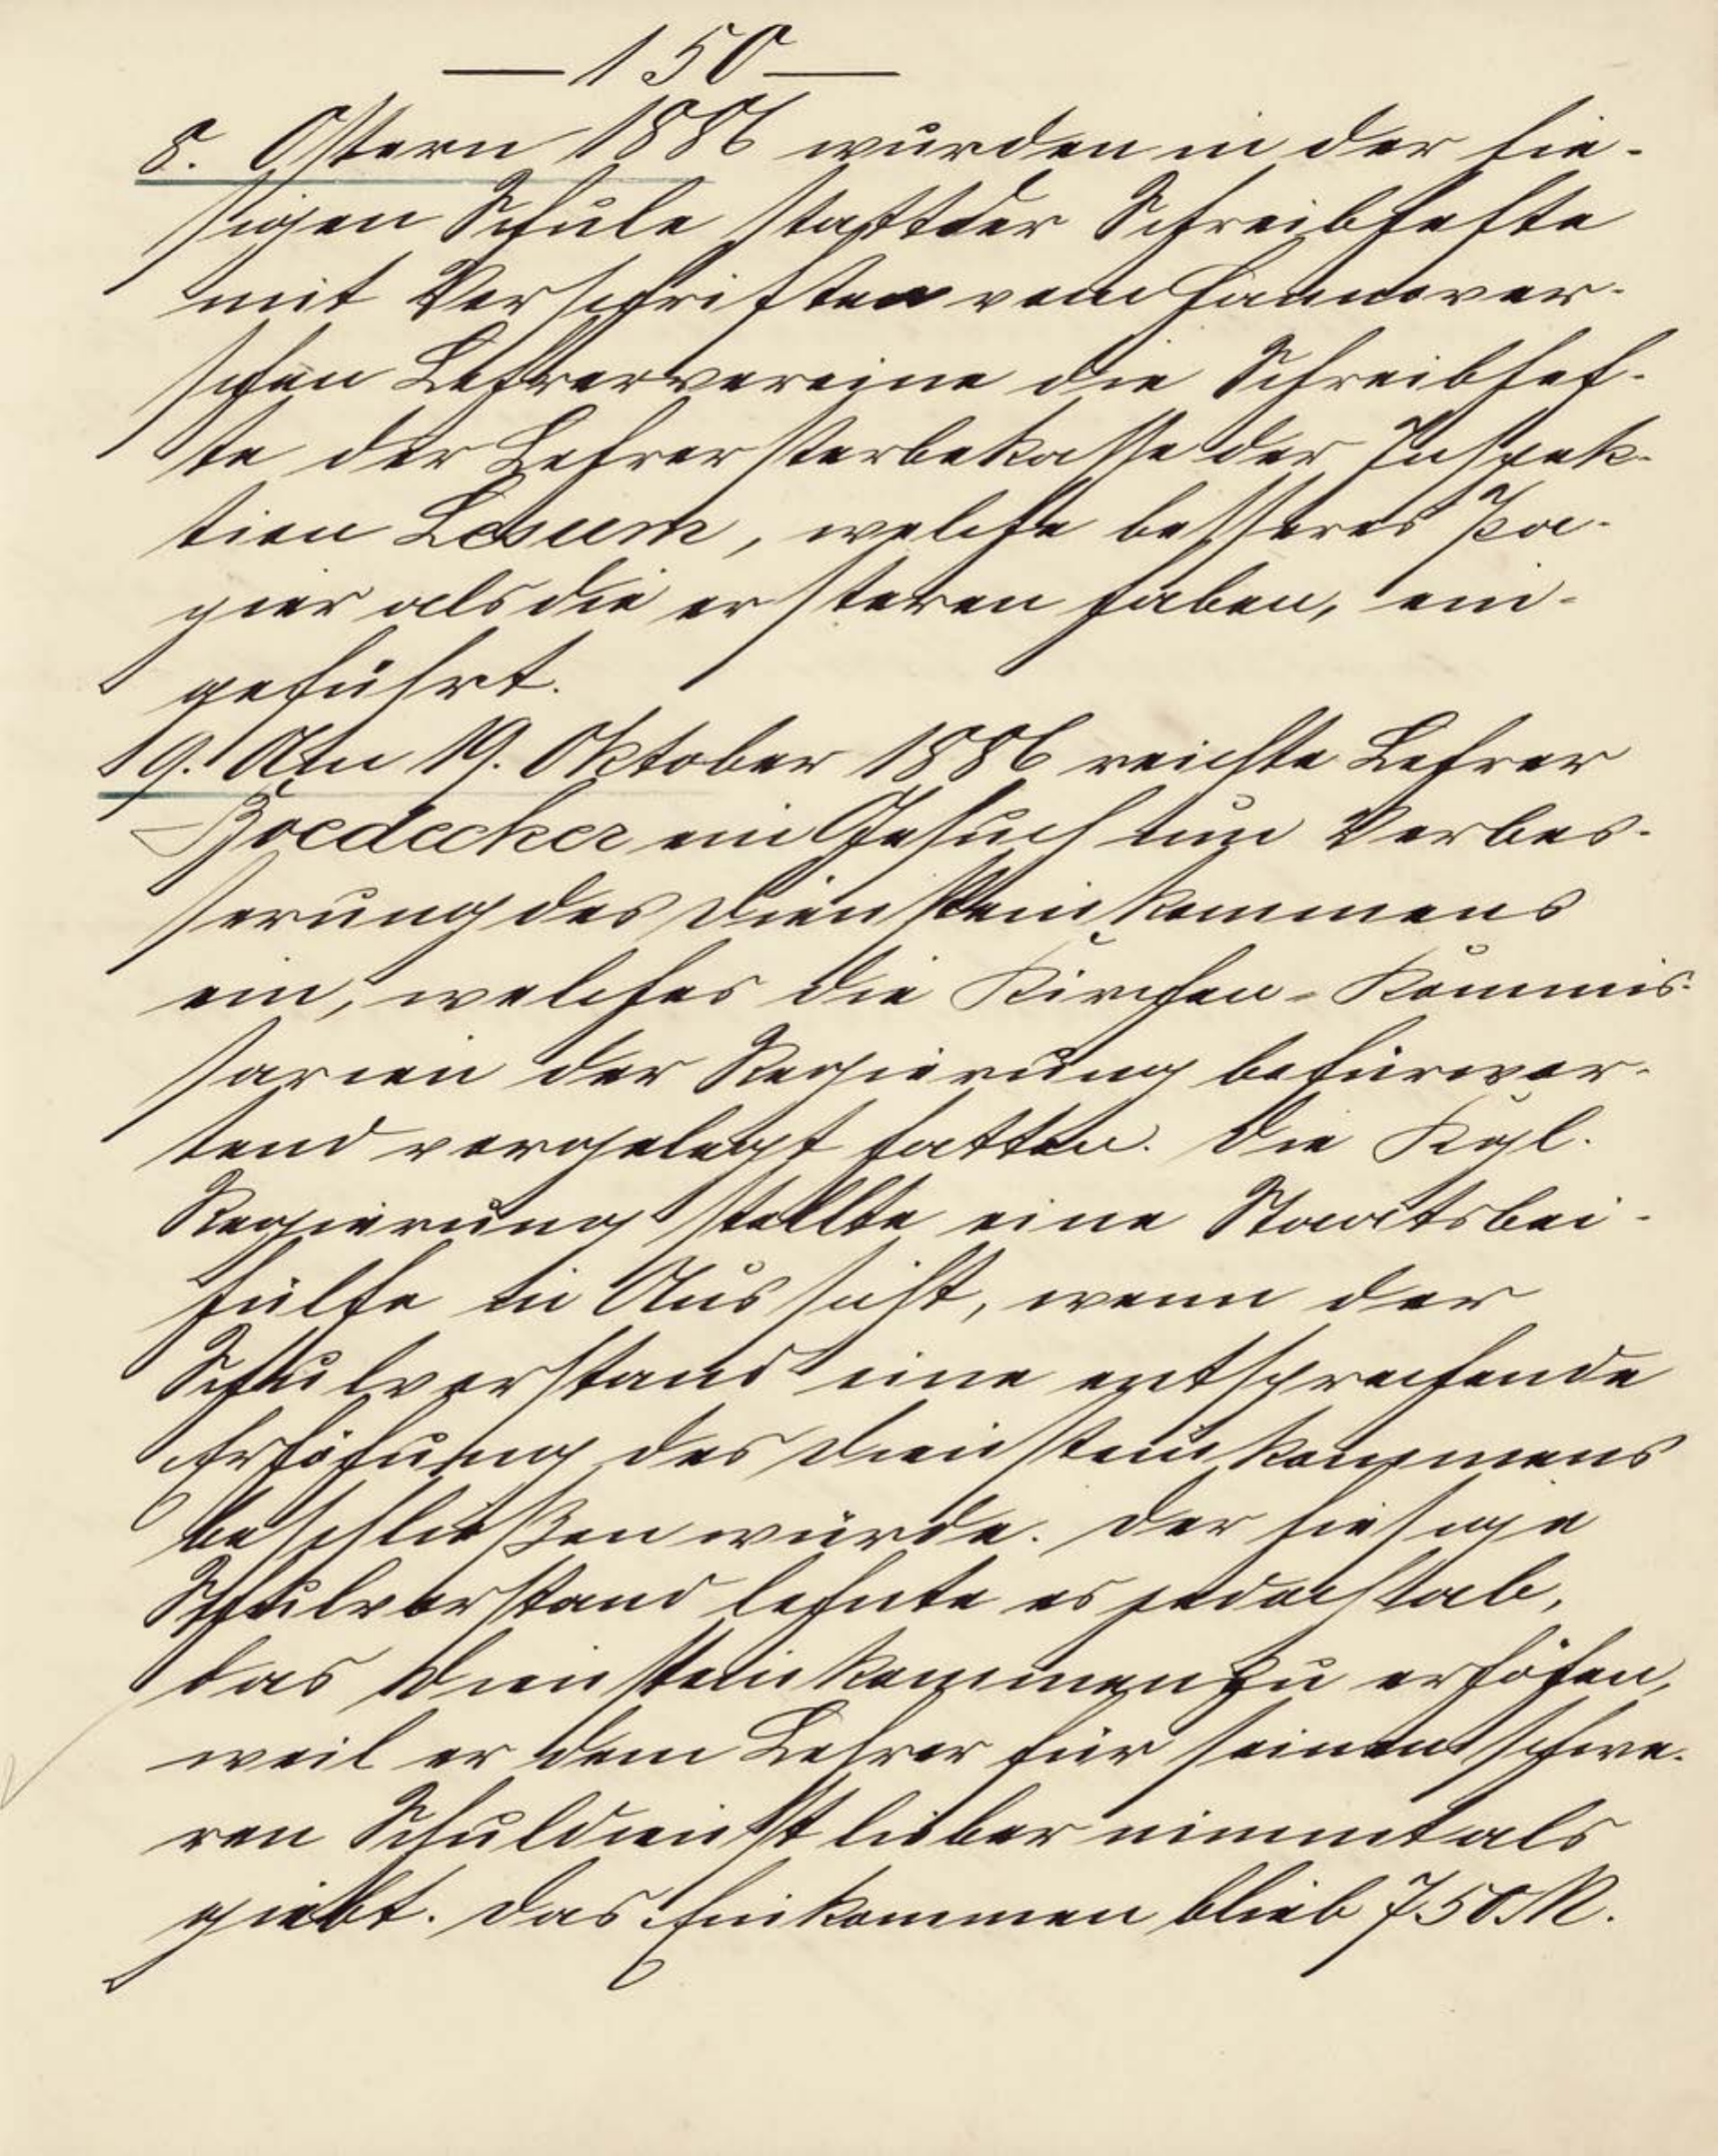 —150—
8. Ostern 1886 wurden in der hie-
sigen Schule statt der Schreibhefte
mit Vorschriften vom Hannover-
schen Lehrervereine die Schreibhef-
te der Lehrersterbekasse der Inspek-
tion Lesum, welche besseres Pa-
pier als die ersteren haben, ein-
geführt.
9. Am 19. Oktober 1886 reichte Lehrer
Boedecker ein Gesuch um Verbes-
serung des Diensteinkommens
ein, welches die Kirchen-Kommis-
sarien der Regierung befürwor-
tend vorgelegt hatten. Die Kgl.
Regierung stellte eine Staatsbei-
hülfe in Aussicht, wenn der
Schulvorstand eine entsprechende
Erhöhung des Diensteinkommens
beschließen würde. Der hiesige
Schulvorstand lehnte es jedoch ab,
das Diensteinkommen zu erhöhen,
weil er dem Lehrer für seinen schwe-
ren Schuldienst lieber nimmt als
giebt. Das Einkommen blieb 750 M.